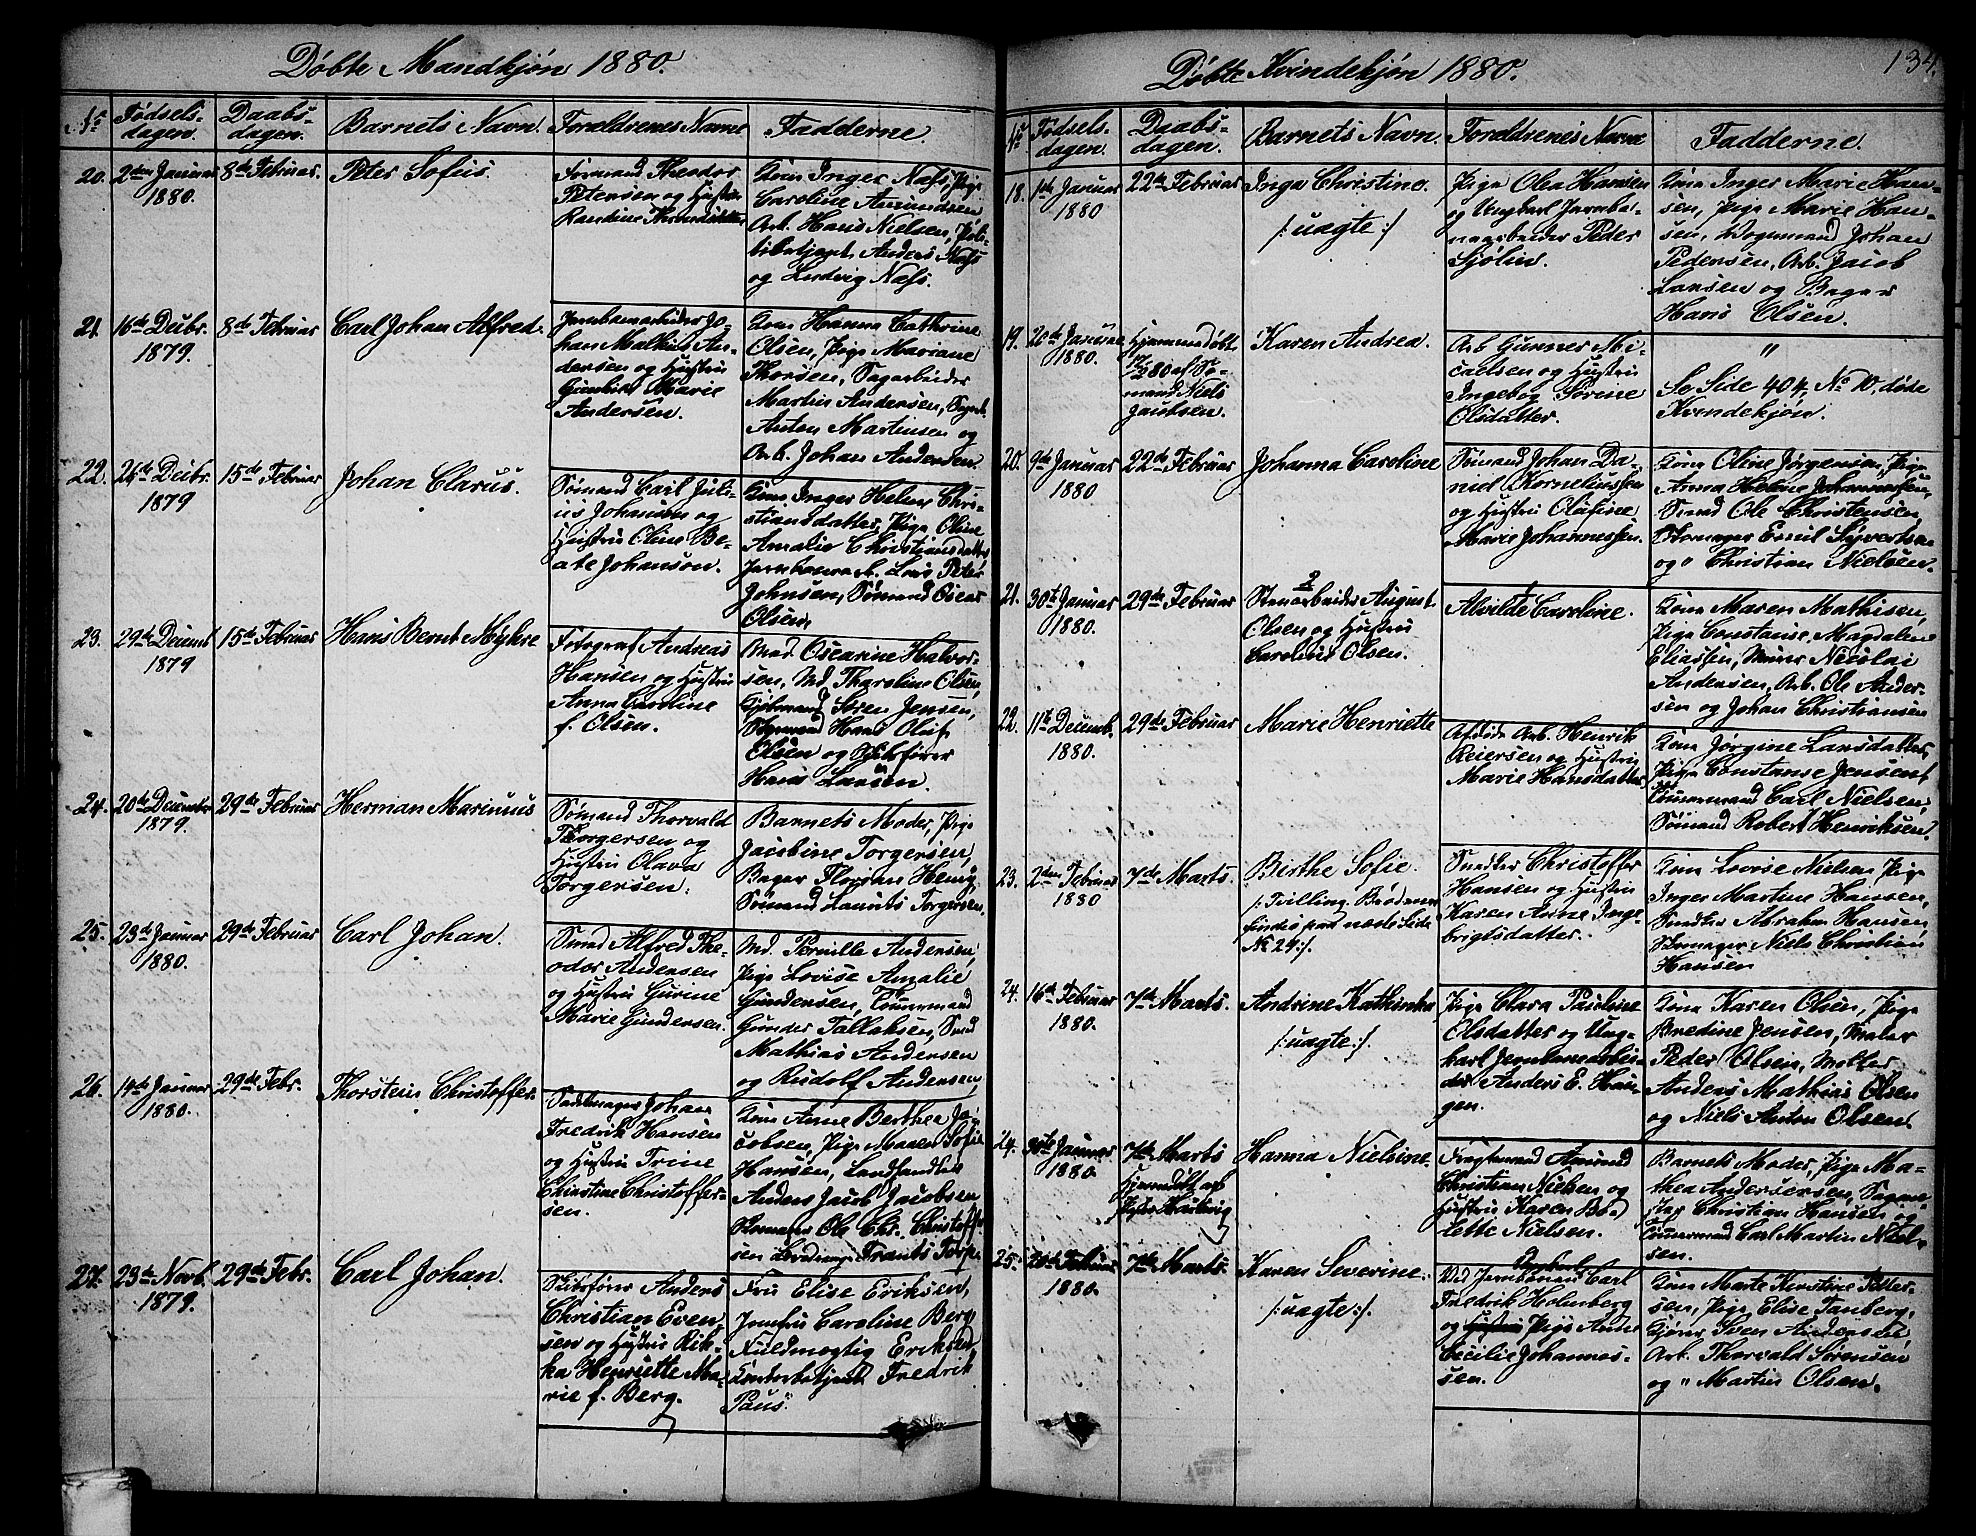 Døbte Mandkjøn 1880.
No Fødsels-dagen. Daabs-dagen. Barnets Navn. Forældrenes Navne Fadderne.
20. 2den Januar 1880. 8de Februar. Peter Sofus.
Formand Theodor
Petersen og Hustru
Kona Inger Næss, Pige
Caroline Amundsen
Arb. Hans Nielsen, Poli-
tibetjent Anders Næss
og Ludvig Næss.
21. 16de Decbr. 1879. 8de Februar Carl Johan Alfred.
Jernbanearbeider Jo-
han Malkus An-
dersen og Hustru
Gunhild Marie
Andersen.
Kona Hanna Cathrine
Olsen, Pige Mariane
Thorsen, Sagarbeider
Martin Andersen, Sagarb.
Anton Martensen og
Arb. Johan Andersen.
22. 26de Decbr. 1879 15de Februar Johan Clarus.
Sømand Carl Juli-
us Johansen og
Hustru Oline Be-
ate Johanson.
Kona Inger Helene Chri-
stiansdatter, Pige Oline
Amalie Christiansdatter,
Jernbanearb. Lars Peter
Johnsen, Sømand Oscar
Olsen.
23. 29de Decemb 1879 15de Februar Hans Bernt Mykre
Fotograf Andreas
Hansen og Hustru
Anna Caroline
f. Olsen.
Mad. Oscarine Halvor-
sen, Md. Tharoline Olsen,
Kjøbmand Søren Jensen,
Styrmand Hans Oluf
Olsen og Skibsfører
Hans Larsen.
24. 20de December 1879. 29de Februar Herman Marinius
Sømand Thorvald
Thorgersen og
Hustru Olava
Torgersen.
Barnets Moder, Pige
Jacobine Torgersen,
Bager Florian Henry,
Sømand Laurits Torgersen.
25. 23de Januar 1880. 29de Februar Carl Johan.
Smed Alfred The-
odor Andersen
og Hustru Gurine
Marie Gundersen.
Md. Pernille Andersen,
Pige Lovise Amalie
Gundersen, Tømmermand
Gunder Tallaksen, Smed
Mathias Andersen
og Rudolf Andersen,
26. 14de Januar 1880. 29de Febr. Thorstein Christoffer.
Sadelmager Johan
Fredrik Hansen
og Hustru Trine
Christine Christoffer-
sen.
Kona Anne Berthea Ja-
cobsen, Pige Maren Sofie
Hansen, Landhandler
Anders Jacob Jacobsen
Skomager Ole Chr. Christoffer-
sen Lovdning Frants Torp.
27. 23de Novb. 1879. 29de Febr. Carl Johan.
Skibsfører Anders
Christian Even-
sen og Hustru Rik-
ka Henriette Ma-
rie f. Berg.
Fru Elise Eriksen,
Jomfru Caroline Berg
Fuldmægtig Eriksen,
Kontorbetjent Fredrik
Paus.
Døbte Kvindekjøn 1880. 134.
No Fødsels-dagen. Daabs-dagen. Barnets Navn. Forældrenes Navne Fadderne.
18. 1ste Januar 1880 22de Februar Inga Christine.
/: uægte :/
Pige Olea Hansen
og Ungkarl Jernba-
nearbeider Peder
Sjølin.
Kona Inger Marie Han-
sen, Pige Marie Han-
sen, Vognmand Johan
Pedersen, Arb. Jacob
Larsen og Bager
Hans Olsen.
19. 20de Januar 1880. Hjemmedøbt 17/2 80 af Sø-
mand Niels
Jacobsen.
Karen Andrea.
Arb. Gunner Mi-
caelsen og Hustru
Ingebog Serine
Olsdatter.
"
Se Side 404, No 10, døde
Kvindekjøn.
20. 9de Januar 1880 22de Februar Johanna Caroline
Sømand Johan Da-
niel Korneliussen
og Hustru Olafine
Marie Johannessen.
Kona Oline Jørgensen, Pige
Anna Heline Johannessen,
Smed Ole Christensen,
Skomager Emil Syvertsen
og " Christian Nielsen.
21. 30te Januar 1880. 29de Februar
2
Stenarbeider August
Olsen og Hustru
Caroline Olsen.
Alvilde Caroline.
Kona Maren Mathisen,
Pige Constanse Magdalene
Eliassen, Murer Nicolai
Andersen, Arb. Ole Ander-
sen og Johan Christiansen
22. 11te Decemb. 1880. 29de Februar Marie Henriette
Afdøde Arb. Henrik
Reiersen og Hustru
Marie Hansdatter,
Kona Jørgine Larsdatter,
Pige Constanse Jensen,
Tømmermand Carl Nielsen,
Sømand Robert Henriksen.
23. 2den Februar 1880 7de Marts. Birthe Sofie.
/: Tvilling. Broderen
findes paa næste Side
No 24 :/.
Snedker Christoffer
Hansen og Hustru
Karen Anne Inge-
brigtsdatter.
Kona Lovise Nielsen, Pige
Inger Martine Hansen,
Snedker Abraham Hansen,
Skomager Niels Christian
Hansen
24. 16de Februar 1880. 7de Marts. Andrine Kathinka
/: uægte :/.
Pige Clara Pauline
Olsdatter og Ung-
karl Jernbanearbei-
der Anders E. Hau-
gen.
Kona Karen Olsen, Pige
Bredine Jensen, Maler
Peder Olsen, Møller
Anders Mathias Olsen
og Niels Anton Olsen.
24. 30te Januar 1880. 7de Marts
Hjemdøbt af
Hanna Nielsine.
Fragtemand Amund
Christian Nielsen og
Hustru Karen Bo-
lette Nielsen.
Barnets Moder, Pige Ma-
thea Andersensen, Sagme-
ster Christian Hansen og
Tømmermand Carl Martin Niel-
sen.
25. 21de Februar 1880. 7de Marts. Karen Severine.
/: uægte :/.
Ungkarl
Ved Jernbanen Carl
Fredrik Holmberg
og Hustru Pige Anne
Cecilie Johannes-
sen.
Kona Marte Kirstine Petter-
sen, Pige Elise Tanberg,
Gjører Sven Andersen
Arb. Thorvald Sørensen
og " Martin Olsen.